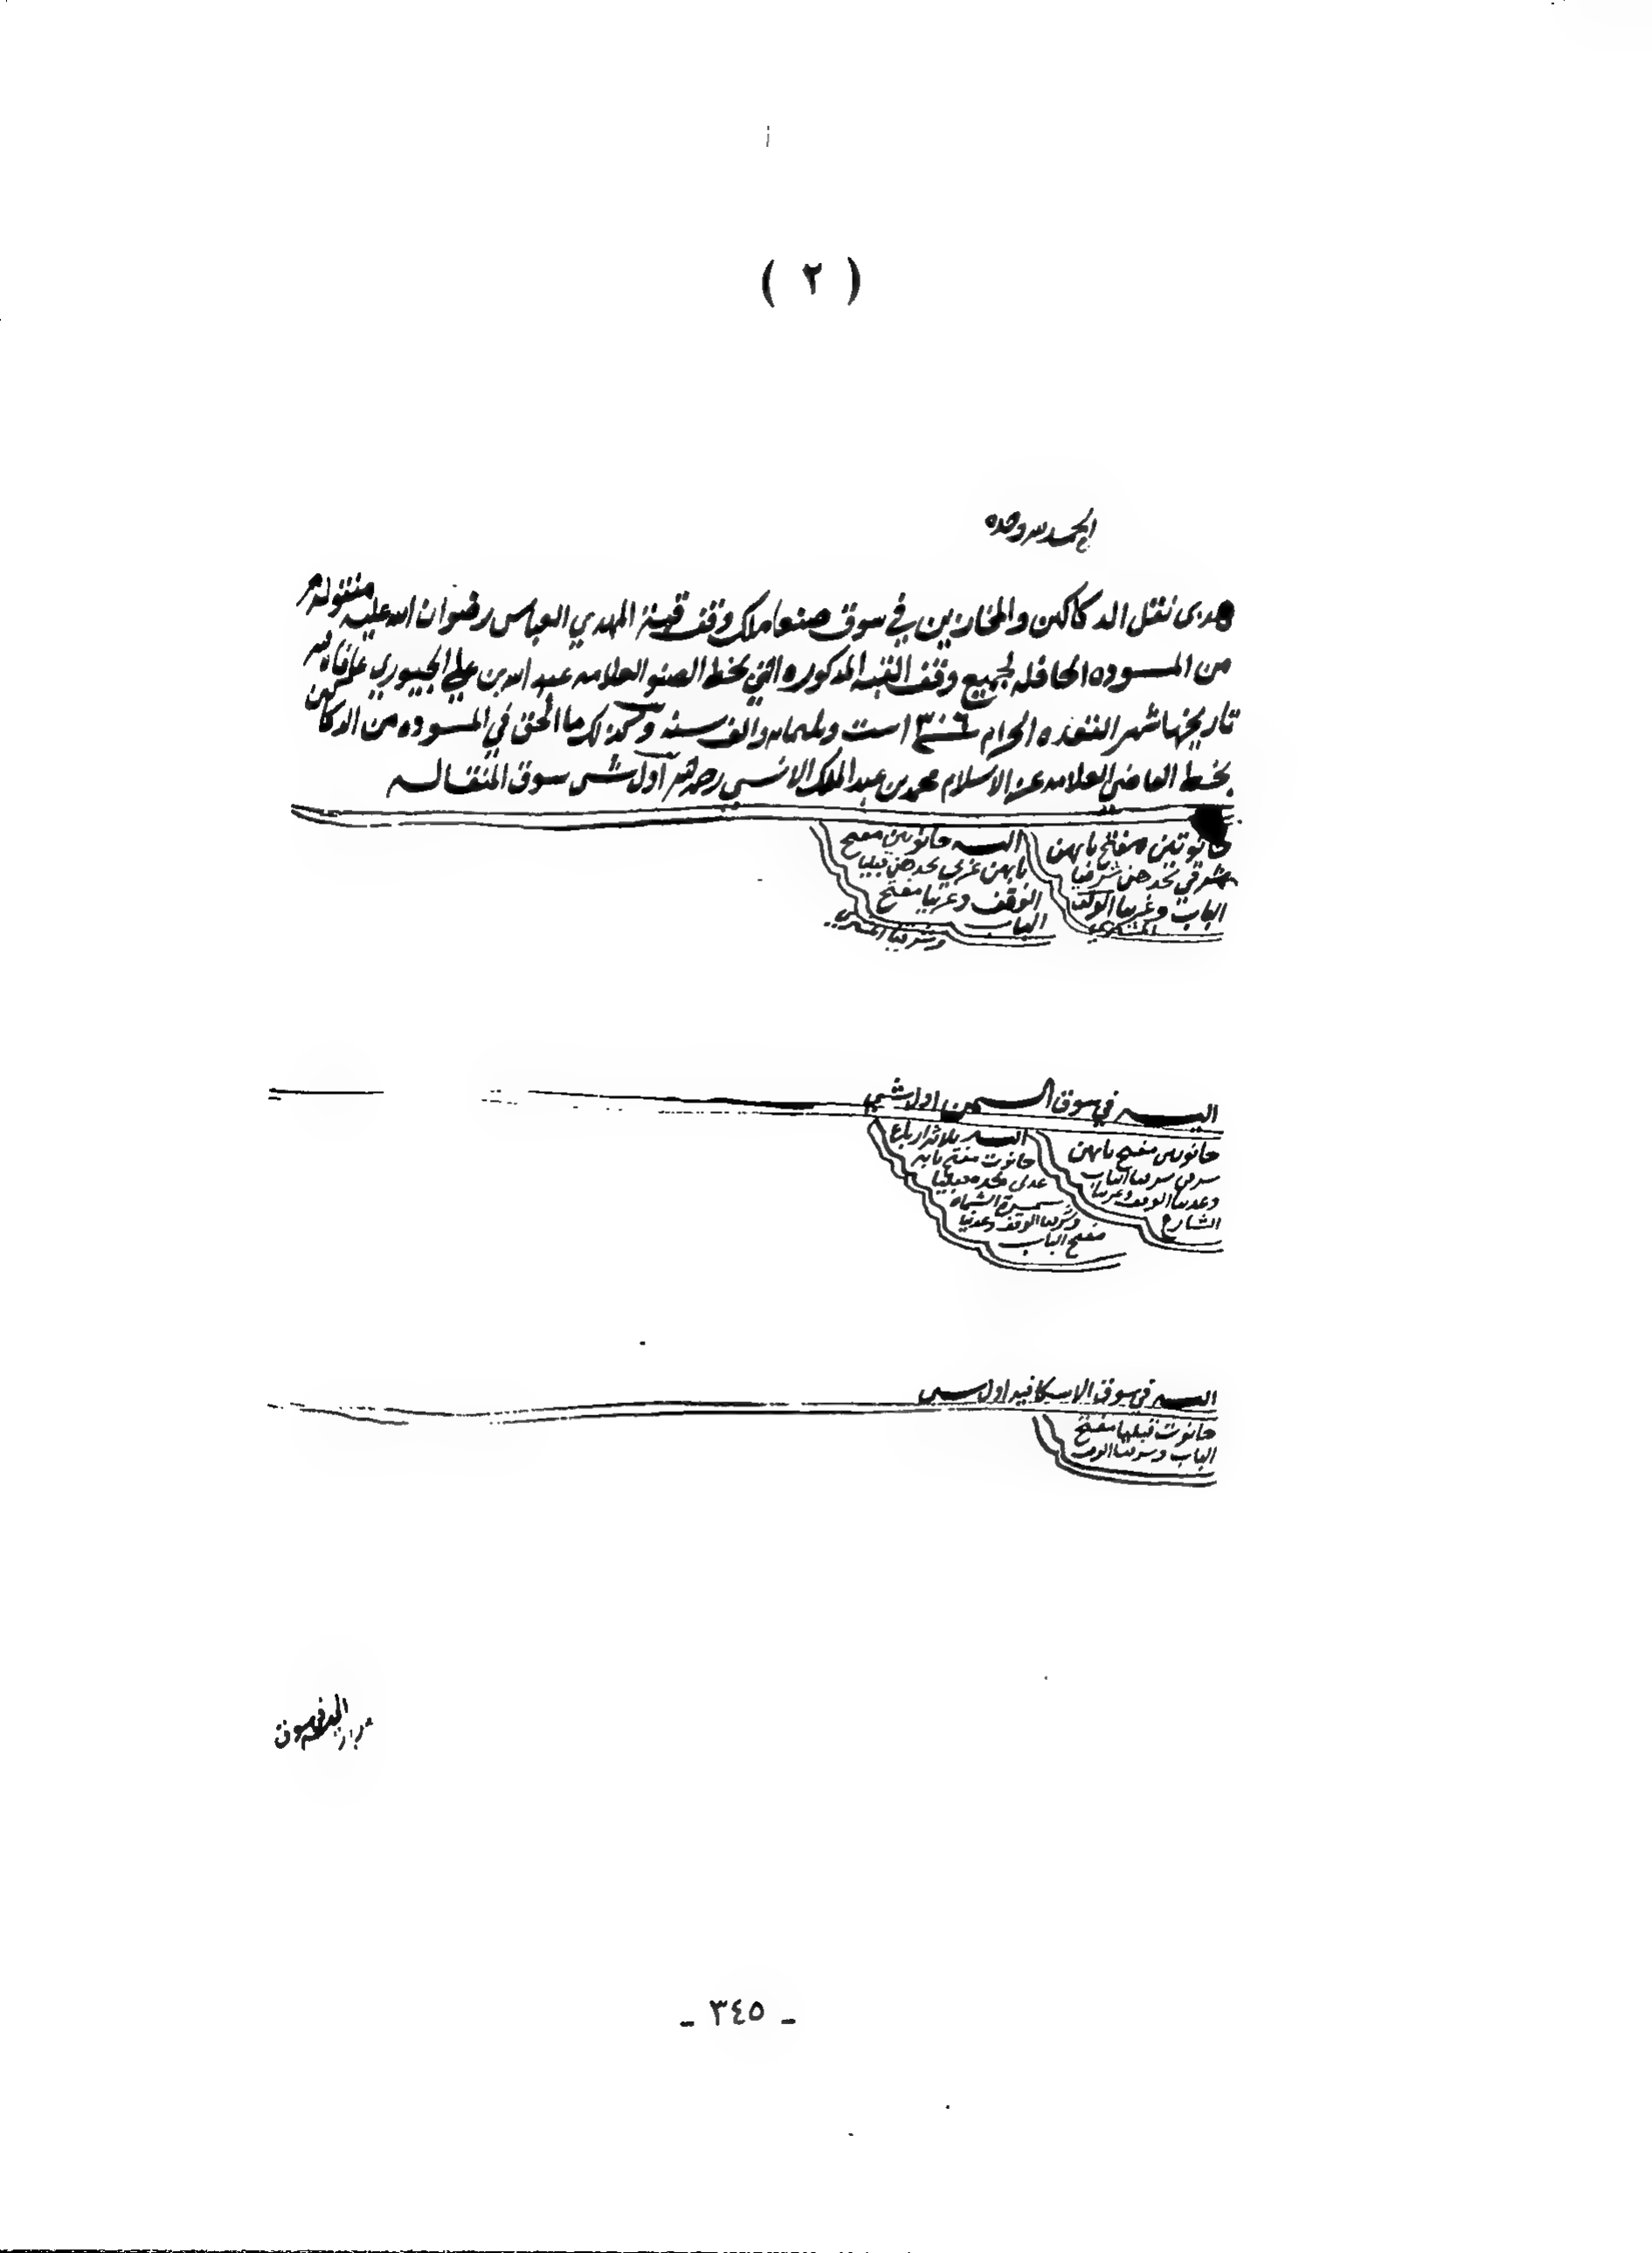 ( ٢ )
الحمد لله وحده
هدى نقل الدكاكين والمخازين في سوق صنعا ملك وقف قبة المهدي العباس رضوان الله عليه منقوله
من المسوده الحافله لجميع وقف القبه المذكوره التي بخط الصنو العلامه عبد الله بن علي الجيوري عافاه الله
تاريخها شهر القعده الحرام ١٣٠٦ ست وثلثمايه والف سنه وكذلك ما الحق في المسوده من الدكاكين
بخط القاضي العلامه عز الاسلام محمد بن عبد الملك الانسي رحمه الله اول شي سوق المنقاله
حانوتين مفاتح بابهن
شرقي تحدهن شرقيا
الباب وغربيا الوقف
اليه حانوتين مفتح
بابهن غربي تحدهن قبليا
الوقف وغربيا مفتح
الباب
وشرقيا
اليه في سوق السمن اول شي
حانوتين مفتح بابهن
شرقي شرقيا الباب
وعدنيا الوقف وغربيا
الشارع
اليه ثلاثة ارباع
حانوت مفتح بابه
عدني تحده قبليا
سمسرة الشماه
وشرقيا الوقف وعدنيا
مفتح الباب
اليه في سوق الاسكافيه اول شي
حانوت قبليا مفتح
الباب وشرقيا الوقف
اليه في سوق
ـ ٣٤٥ ـ